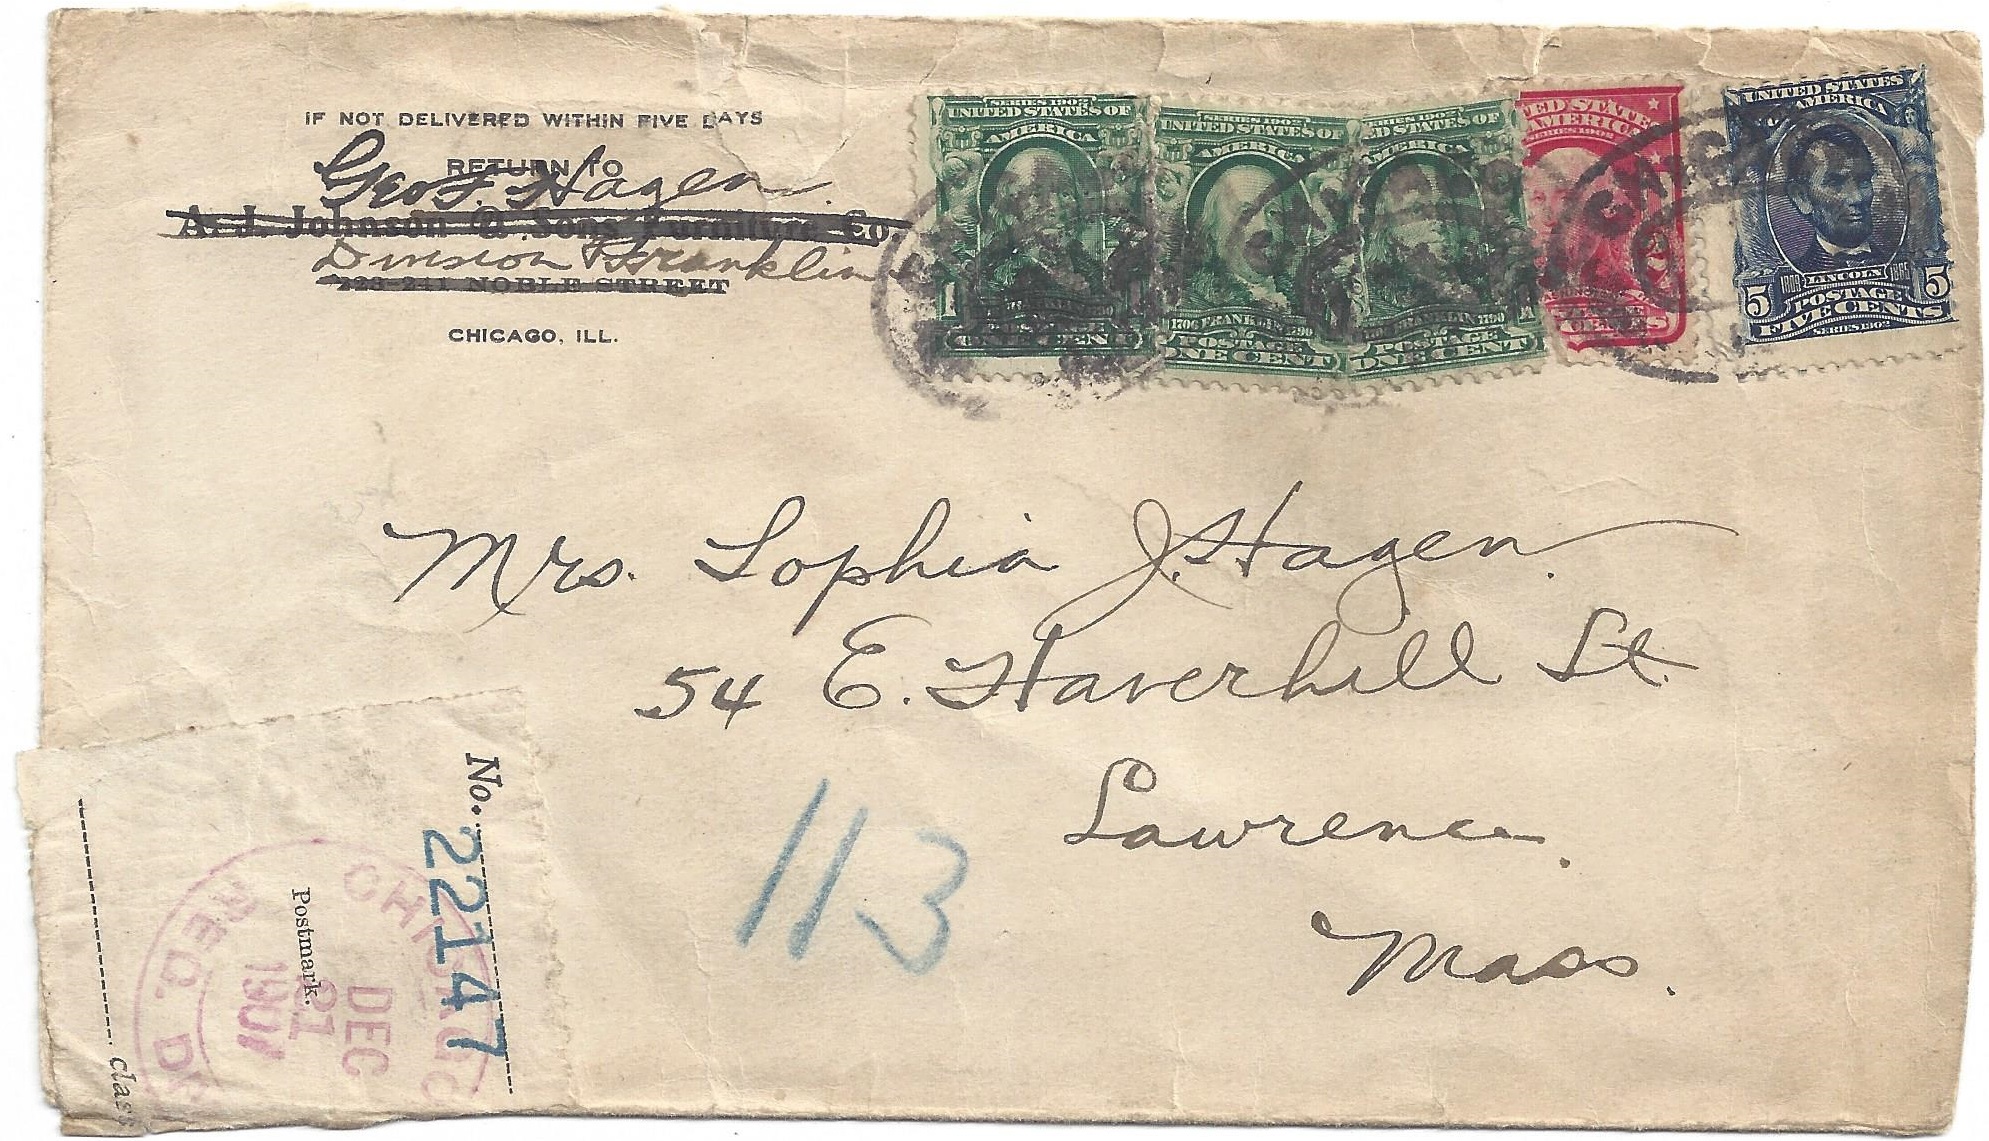 IF NOT DELIVERED WITHIN FIVE DAYS
RETURN TO
Geo F. Hagen.
A. J. Johnson & Sons Furniture Co.
Division & Franklin
223-241 NOBLE STREET
CHICAGO, ILL.
SERIES 1902
UNITED STATES OF
AMERICA
ONE CENT
SERIES 1902
UNITED STATES OF
AMERICA
1706 FRANKLIN 1790
POSTAGE
ONE CENT
SERIES 1902
ED STATES OF
AMERICA
FRANKLIN 1790
POSTAGE
ONE CENT
TED STATE
AMERICA
SERIES 1902
2
CENTS
CHICAGO
UNITED STATES
AMERICA
1809 LINCOLN 1865
5 POSTAGE 5
FIVE CENTS
SERIES 1902
Mrs. Sophia J. Hagen.
54 E. Haverhill St.
Lawrence.
Mass.
113
No. 22147
Postmark.
CHICAGO
REG. D
DEC
21
class